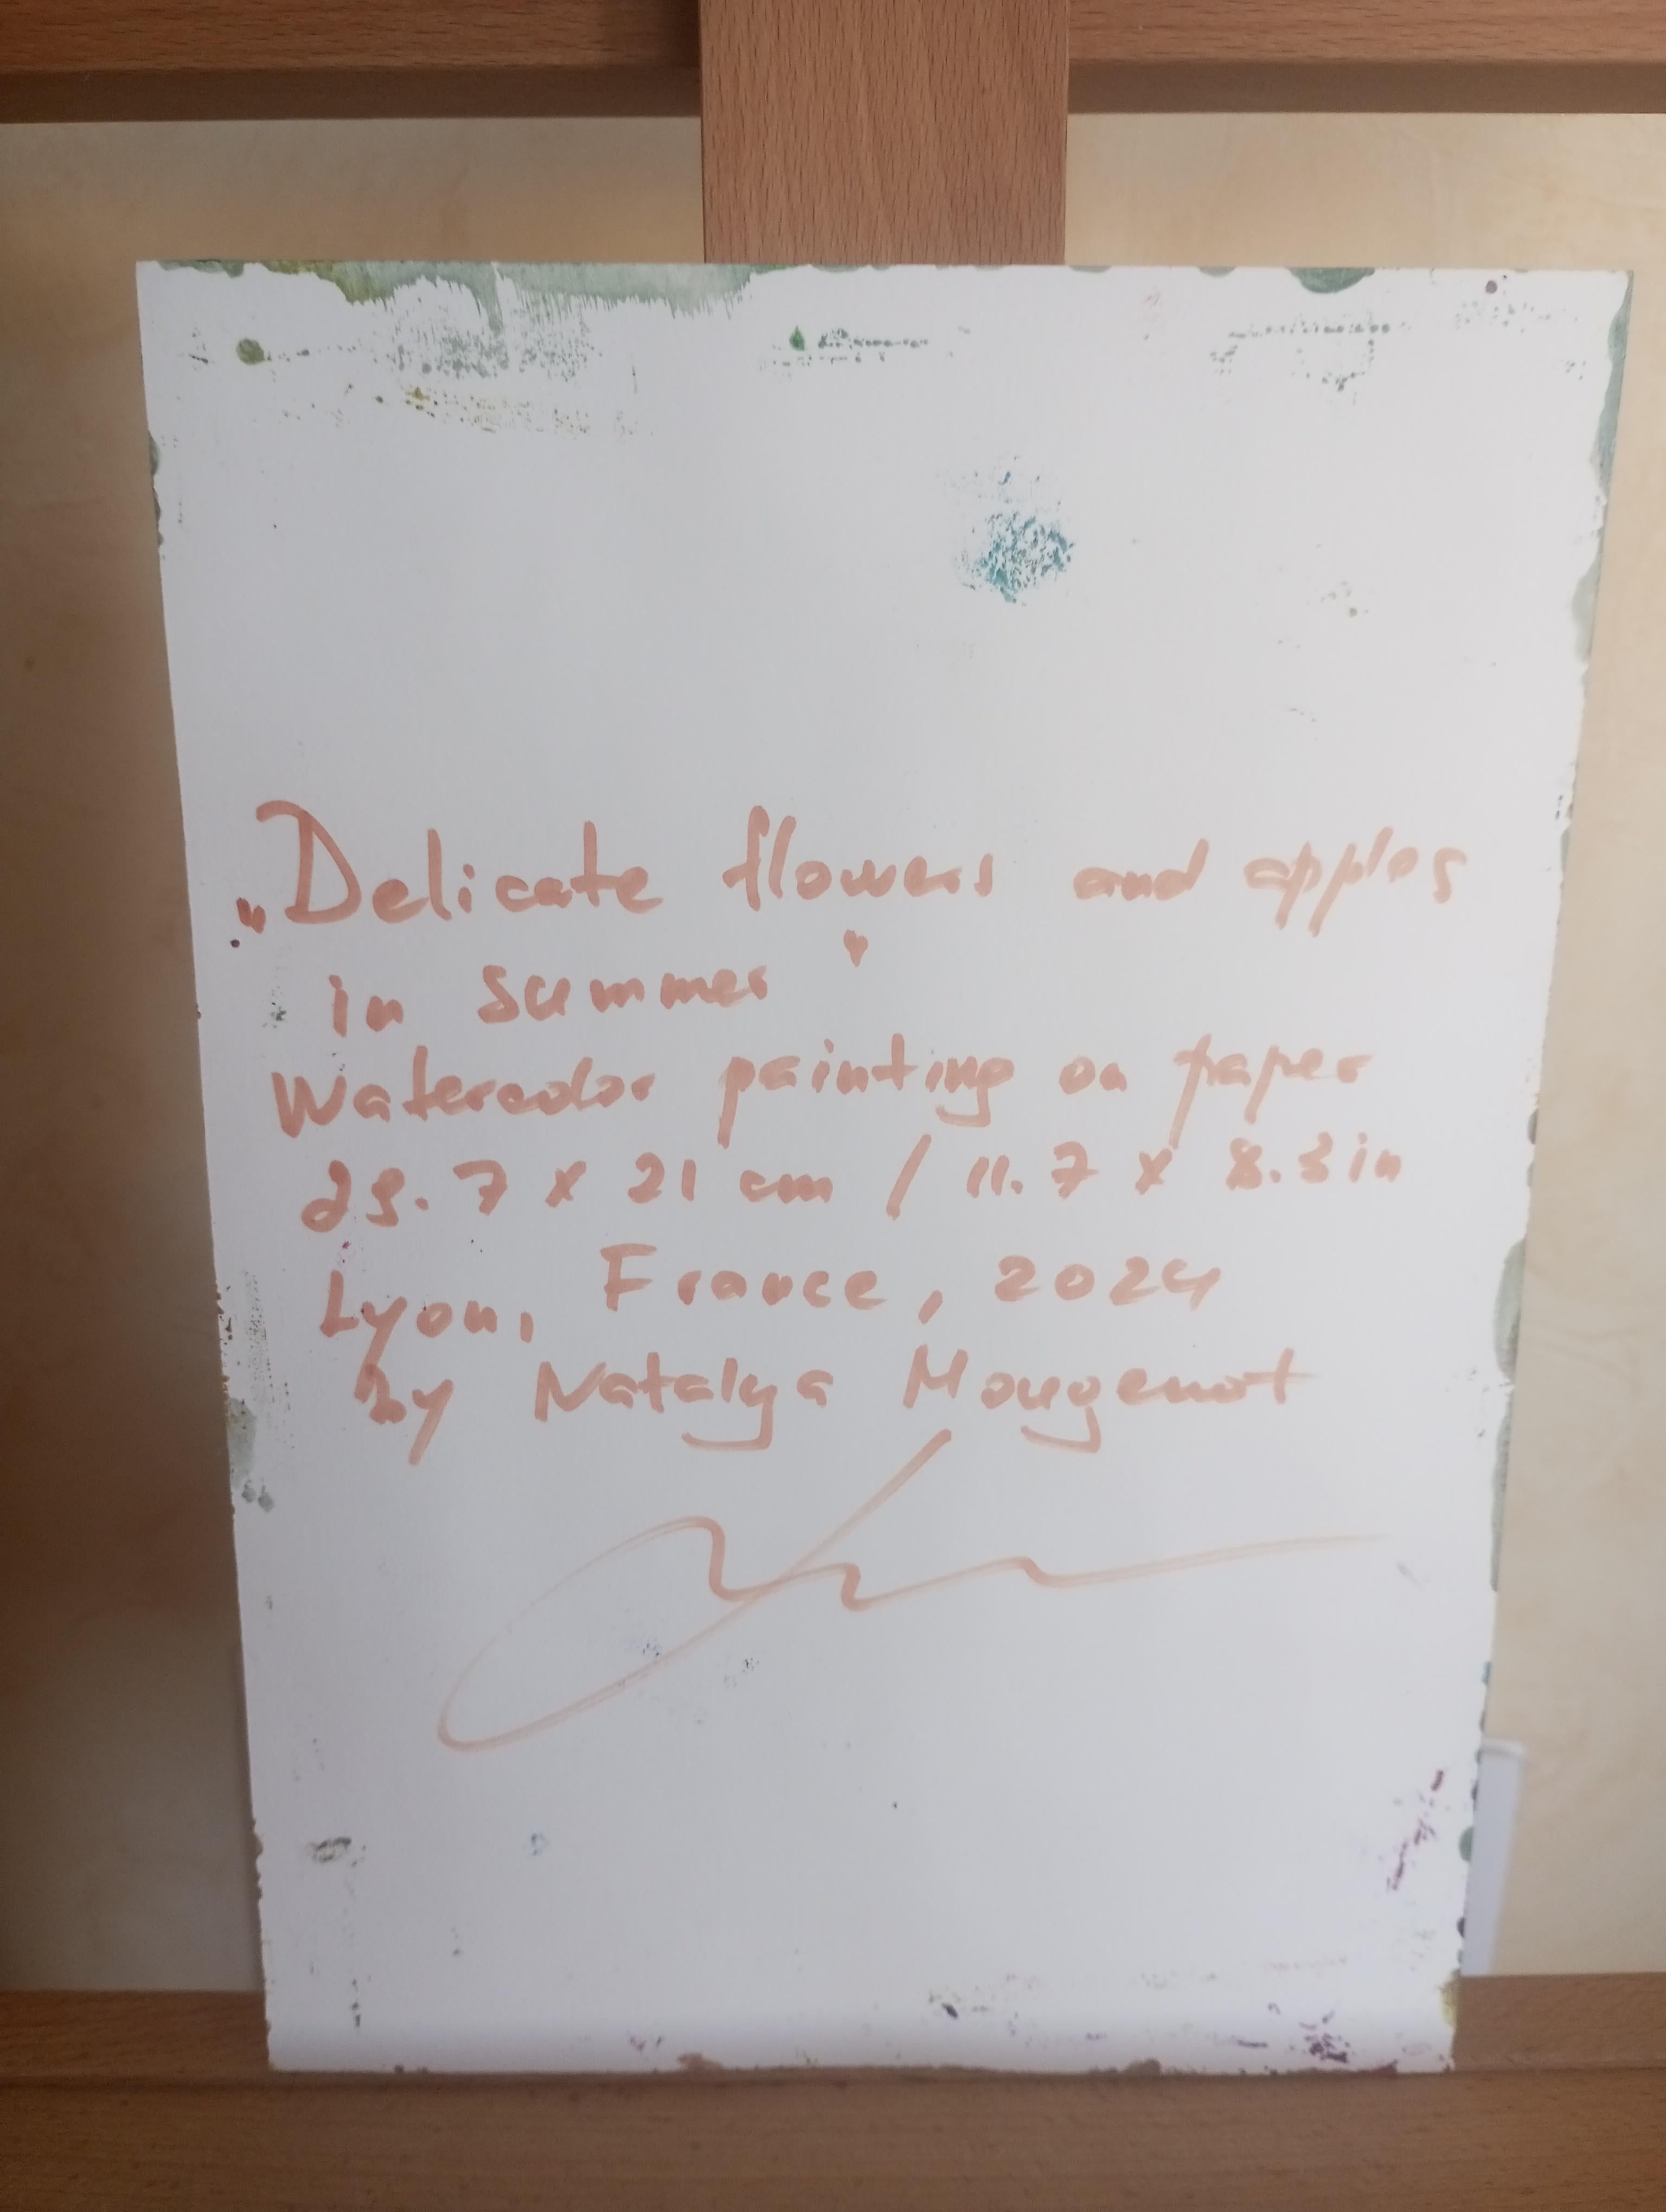 „Delicate flowers and apples
in summer"
Watercolor painting on paper
29.7 x 21 cm / 11.7 x 8.3 in
Lyon, France, 2024
by Natalya Mougenot